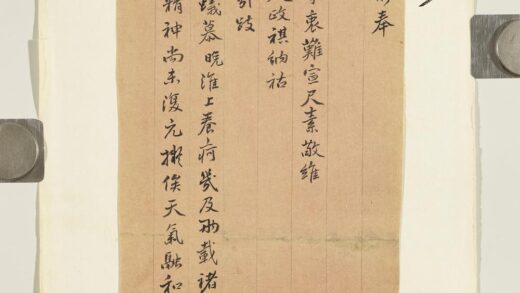 奉
衷難宣尺素敬維
政祺納祜
引跂
蟻慕晚淮上養疴幾及兩載
精神尚未復元擬俟天氣融和